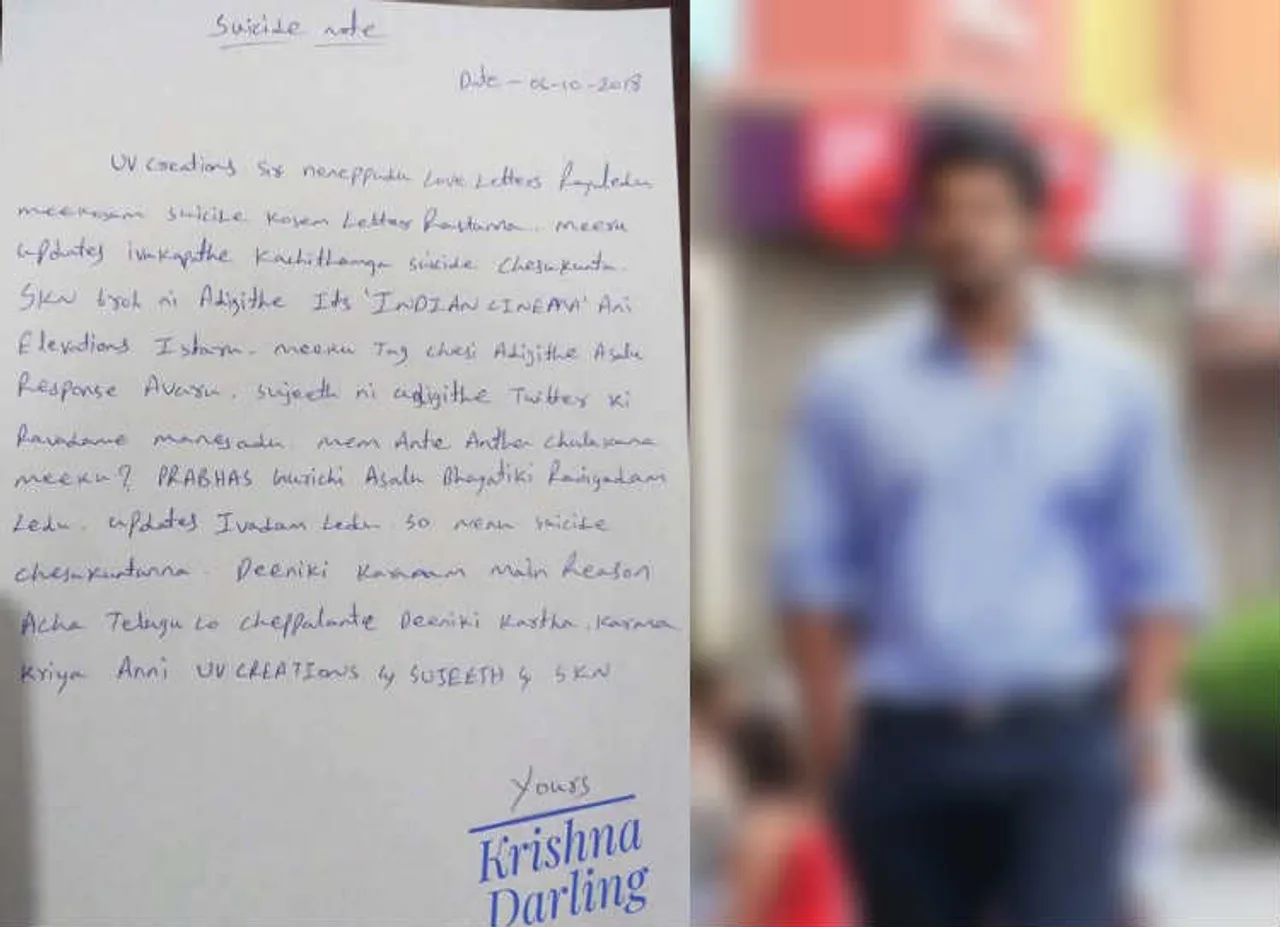 Suicide note
Date - 06-10-2018
UV Creations sir neneppudu Love Letters Rayaledu
meekosam suicide kosem Letter Rastunna. meeru
updates ivakapthe Kachithamga suicide chesukunta.
SKN broh ni Adigithe Its 'INDIAN CINEMA' Ani
Elevations Istaru. meeku Tag chesi Adigithe Asalu
Response Avaru. sujeeth ni adigithe Twitter ki
Ravadame manesadu. mem Ante Antha chulakana
meeku? PRABHAS Gurichi Asalu Bhayatiki Raivvadam
Ledu. updates Ivadam Ledu. so nenu suicide
chesukuntunna. Deeniki Karanam main Reason
Acha Telugu Lo cheppalante Deeniki Kartha, Karma
Kriya Anni UV CREATIONS & SUJEETH & SKN
Yours
Krishna
Darling